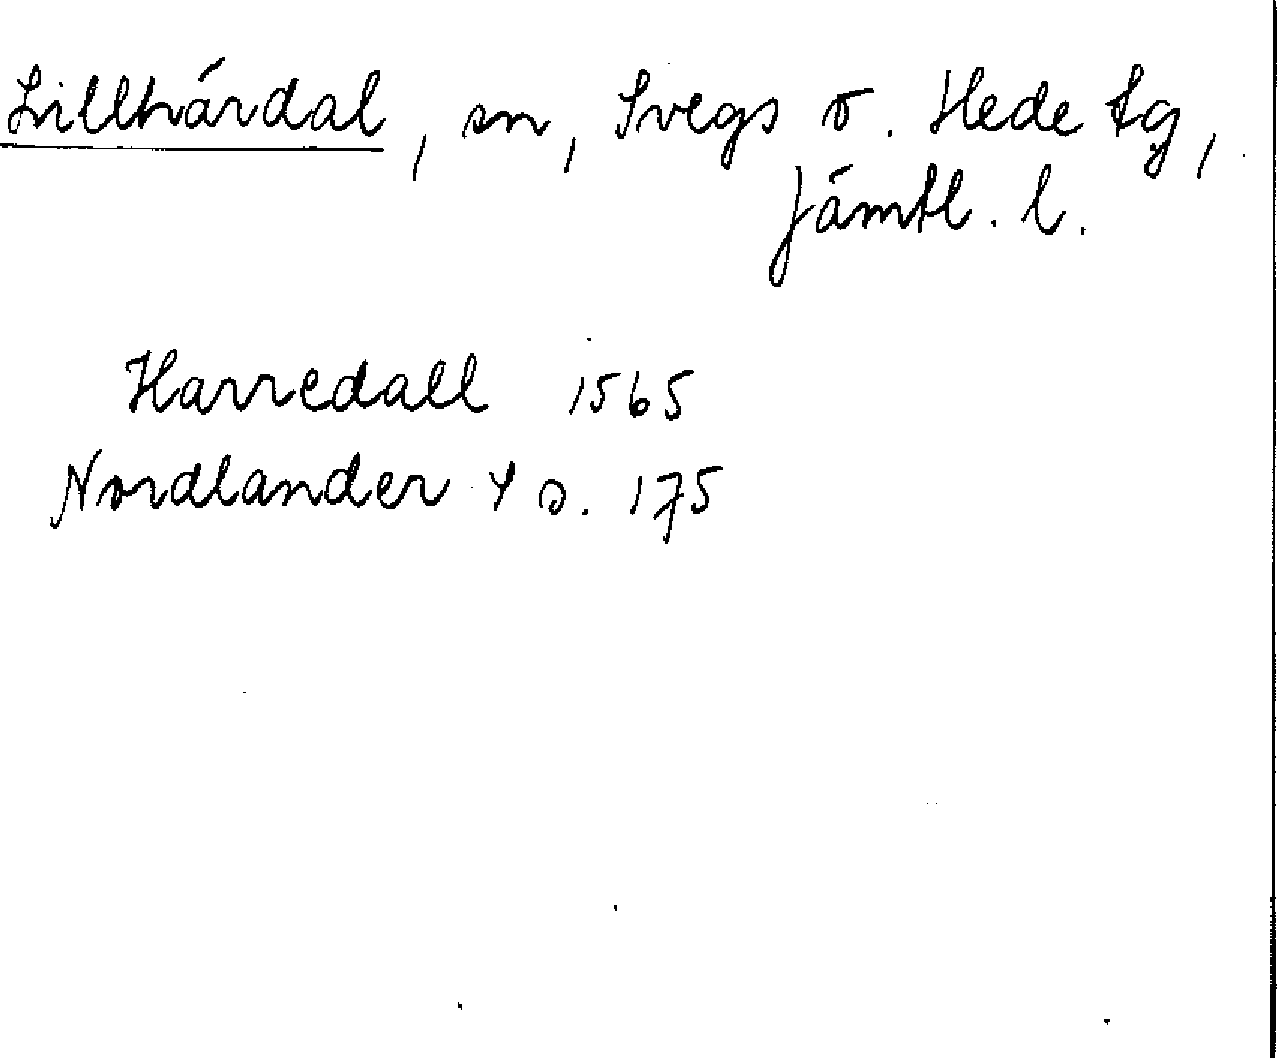 Lillhärdal, sn, Svegs o. Hede tg,
Jämtl. l.
Harredall 1565
Nordlander 4 s. 175